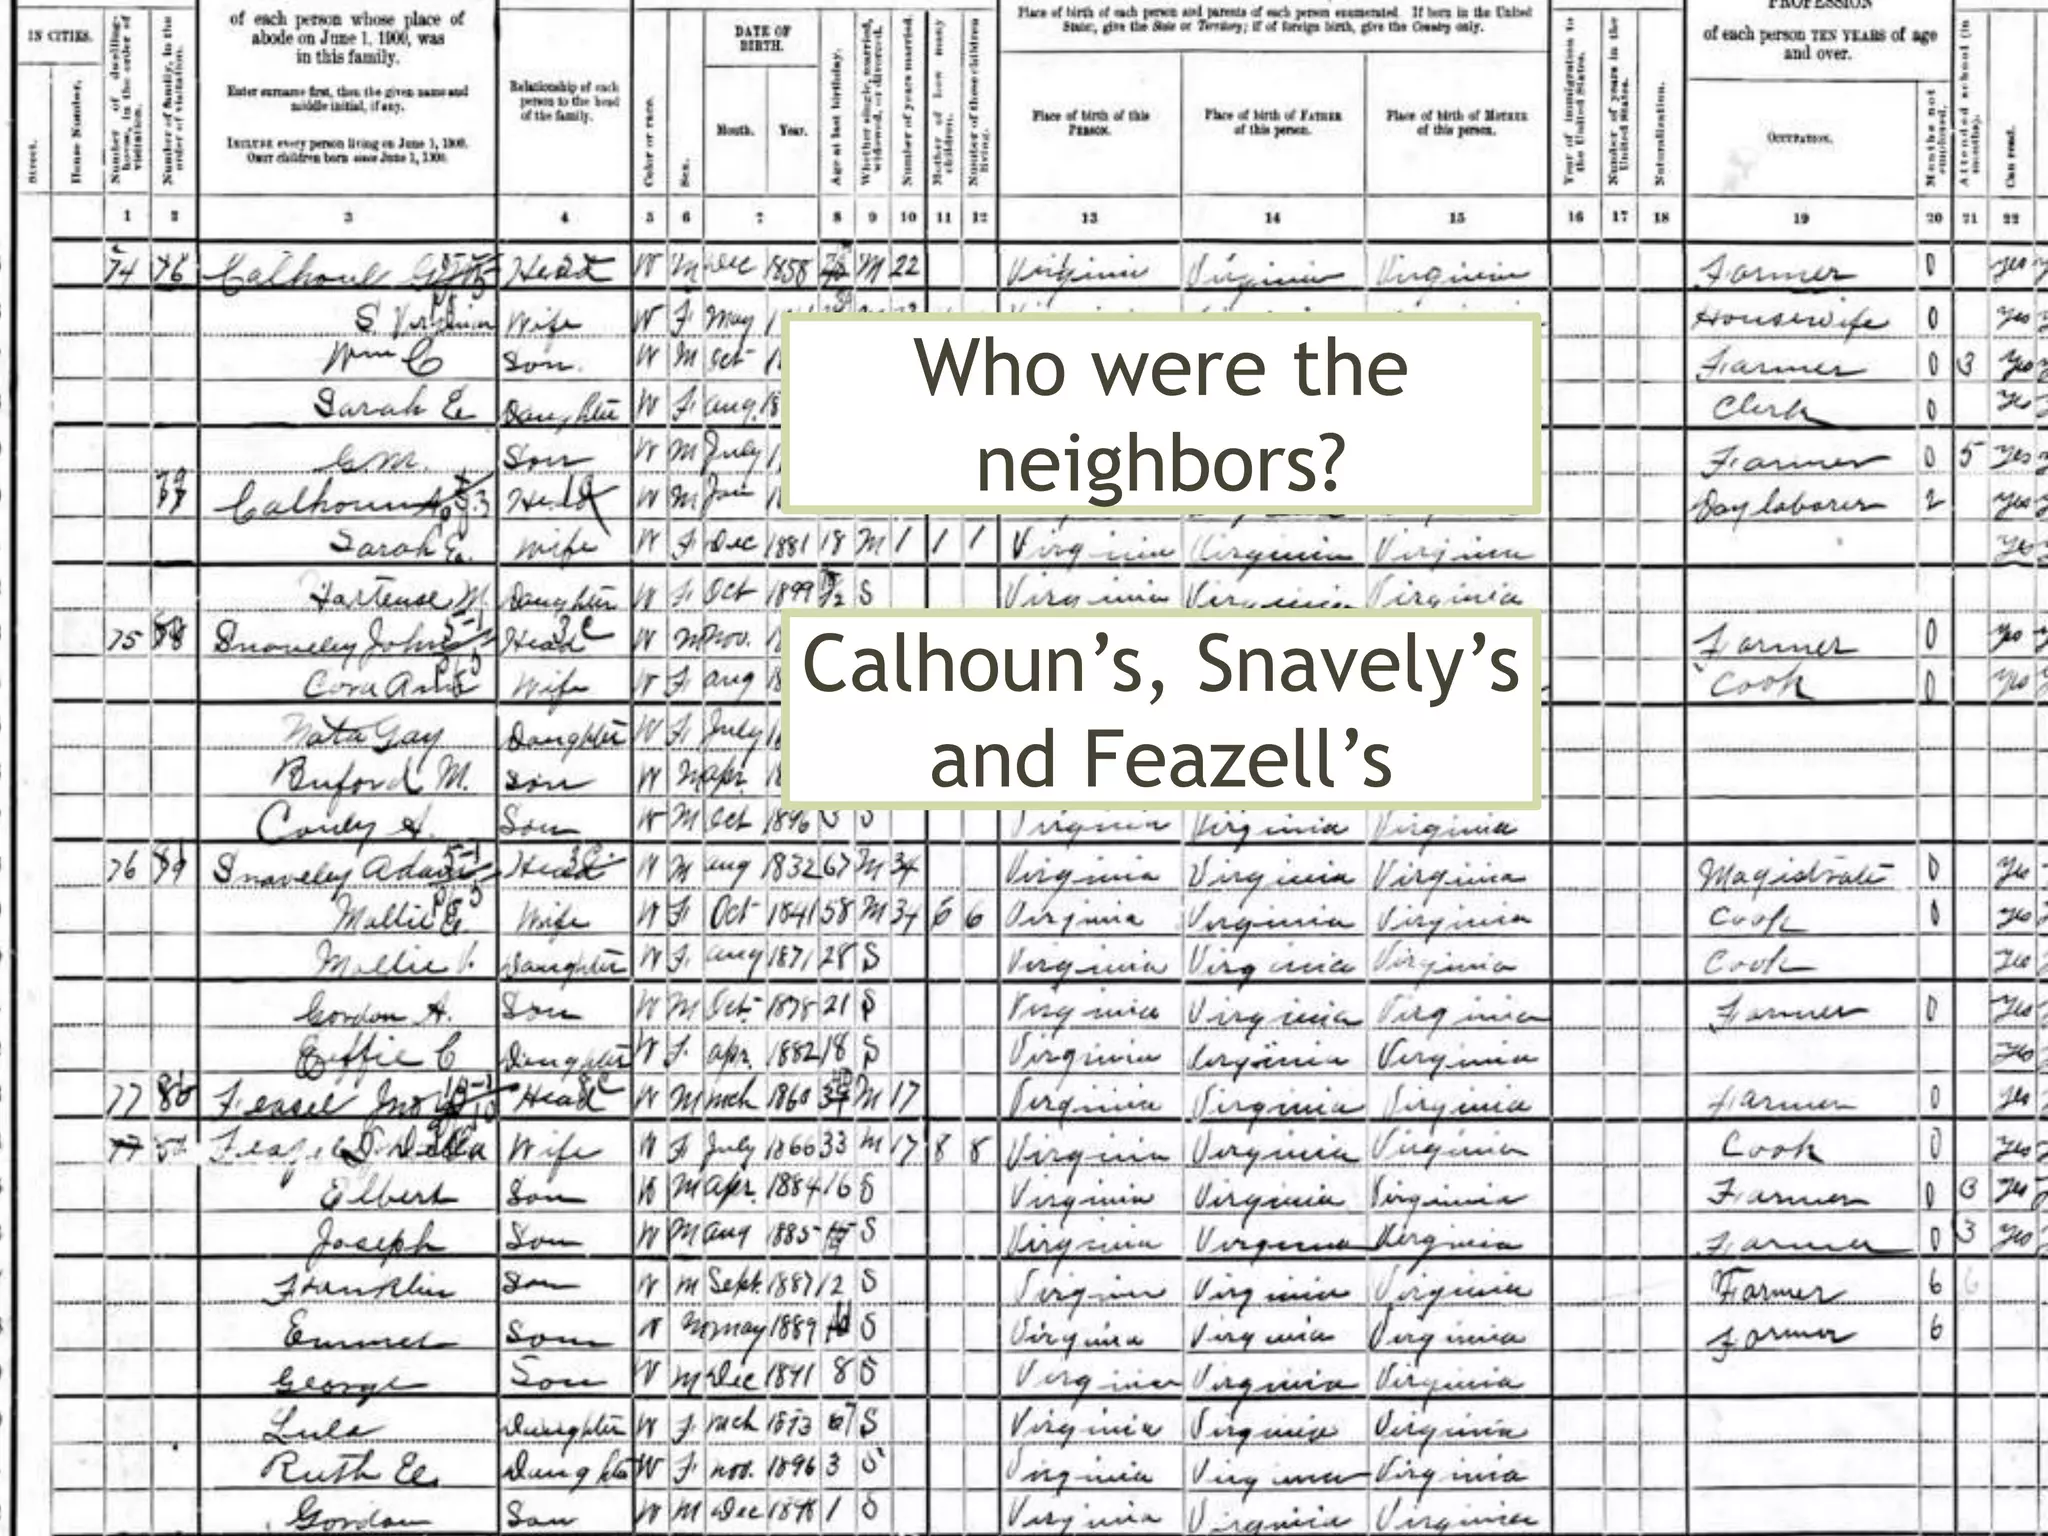 IN CITIES.
Street.
House Number.
Number of dwelling-house, in the order of visitation.
Number of family, in the order of visitation.
of each person whose place of
abode on June 1, 1900, was
in this family.
Enter surname first, then the given name and
middle initial, if any.
INCLUDE every person living on June 1, 1900.
OMIT children born since June 1, 1900.
Relationship of each
person to the head
of the family.
Color or race.
Sex.
DATE OF
BIRTH.
Month. Year.
Age at last birthday.
Whether single, married, widowed, or divorced.
Number of years married.
Mother of how many children.
Number of these children living.
Place of birth of each person and parents of each person enumerated. If born in the United
States, give the State or Territory; if of foreign birth, give the Country only.
Place of birth of this
PERSON.
Place of birth of FATHER
of this person.
Place of birth of MOTHER
of this person.
Year of immigration to the United States.
Number of years in the United States.
Naturalization.
PROFESSION
of each person TEN YEARS of age
and over.
OCCUPATION.
Months not employed.
Attended school (in months).
Can read.
1 2 3 4 5 6 7 8 9 10 11 12 13 14 15 16 17 18 19 20 21 22
74 76 Calhoun Head W M Dec 1858 M 22 Virginia Virginia Virginia Farmer 0 yes
S. Virginia Wife W F May Housewife 0 yes
Wm C Son W M Oct Farmer 0 3 yes
Sarah E Daughter W F Aug. Clerk 0 yes
G M. Son W M July Farmer 0 5 yes
Calhoun Head W M Jan Day laborer 2 yes
Sarah E. Wife W F Dec 1881 18 M 1 1 1 Virginia Virginia Virginia yes
Hortense M. Daughter W F Oct 1899 S Virginia Virginia Virginia
75 Snaveley John Head W M Nov. Farmer 0 yes
Cora Ann Wife W F Aug Cook 0 yes
Nata Gay Daughter W F July
Buford M. Son W M Apr.
Conly A. Son W M Oct 1896 3 S Virginia Virginia Virginia
76 Snaveley Adam Head W M Aug 1832 67 M 34 Virginia Virginia Virginia Magistrate 0 yes
Mollie E. Wife W F Oct 1841 58 M 34 6 6 Virginia Virginia Virginia Cook 0 yes
Mollie V. Daughter W F Aug 1871 28 S Virginia Virginia Virginia Cook yes
Gordon A. Son W M Oct. 1878 21 S Virginia Virginia Virginia Farmer 0 yes
Effie C Daughter W F. Apr. 1882 18 S Virginia Virginia Virginia yes
77 80 Feasel Jno Head W M Mch 1860 M 17 Virginia Virginia Virginia Farmer 0 yes
Della Wife W F July 1866 33 M 17 8 8 Virginia Virginia Virginia Cook 0 yes
Elbert Son W M Apr. 1884 16 S Virginia Virginia Virginia Farmer 0 3 yes
Joseph Son W M Aug 1885 S Virginia Virginia Virginia Farmer 0 3 yes
Franklin Son W M Sept. 1887 12 S Virginia Virginia Virginia Farmer 6 6
Emmet Son W M May 1889 S Virginia Virginia Virginia Farmer 6
George Son W M Dec 1891 8 S Virginia Virginia Virginia
Lula Daughter W F Mch 1893 S Virginia Virginia Virginia
Ruth E. Daughter W F Nov. 1896 3 S Virginia Virginia Virginia
Gordon Son W M Dec 1898 1 S Virginia Virginia Virginia
Who were the
neighbors?
Calhoun’s, Snavely’s
and Feazell’s